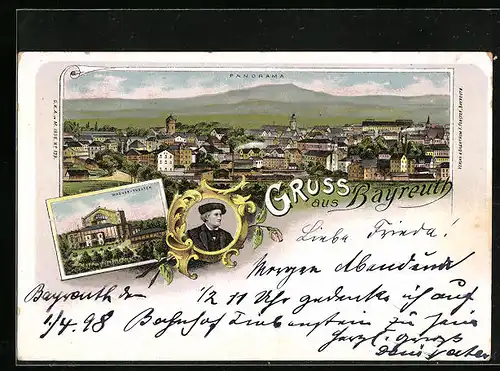 PANORAMA
WAGNER-THEATER
GRUSS
aus Bayreuth
Liebe Frieda!
Morgen Abend
Bayreuth den 1/2 11 Uhr gedenke ich auf
1/4. 98 Bahnhof zu sein
Herzl. Gruss
Dein Vater